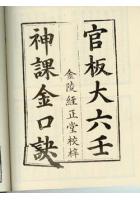 官板大六壬
金陵經正堂校梓
神課金口訣